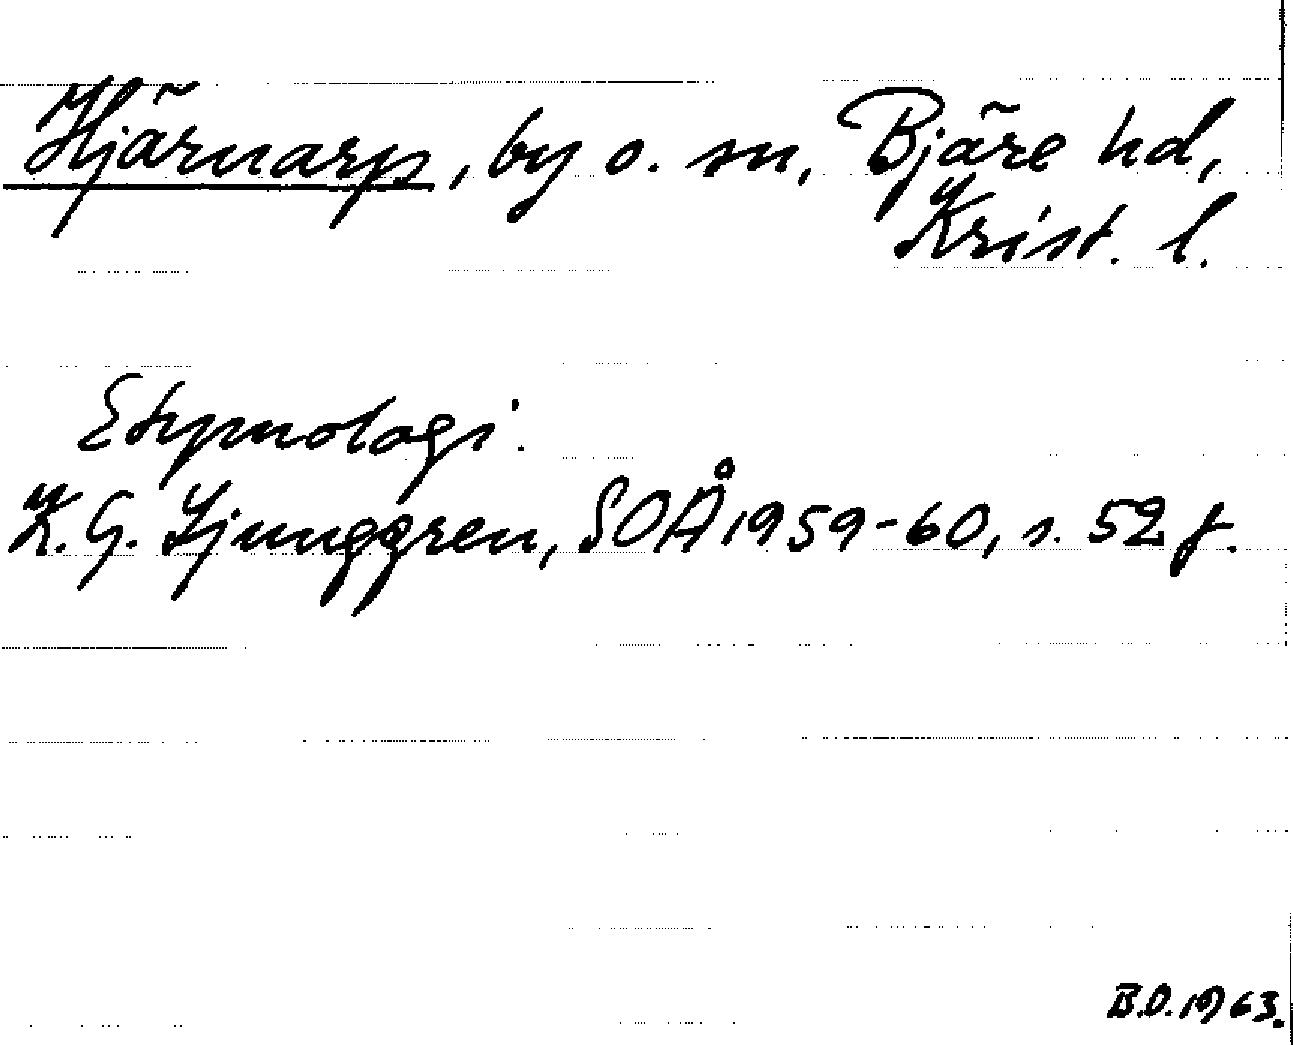 Hjärnarp, by o. sn, Bjäre hd,
Krist. l.
Etymologi:
K. G. Ljunggren, SOÅ 1959-60, s. 52 f.
B.O. 1963.